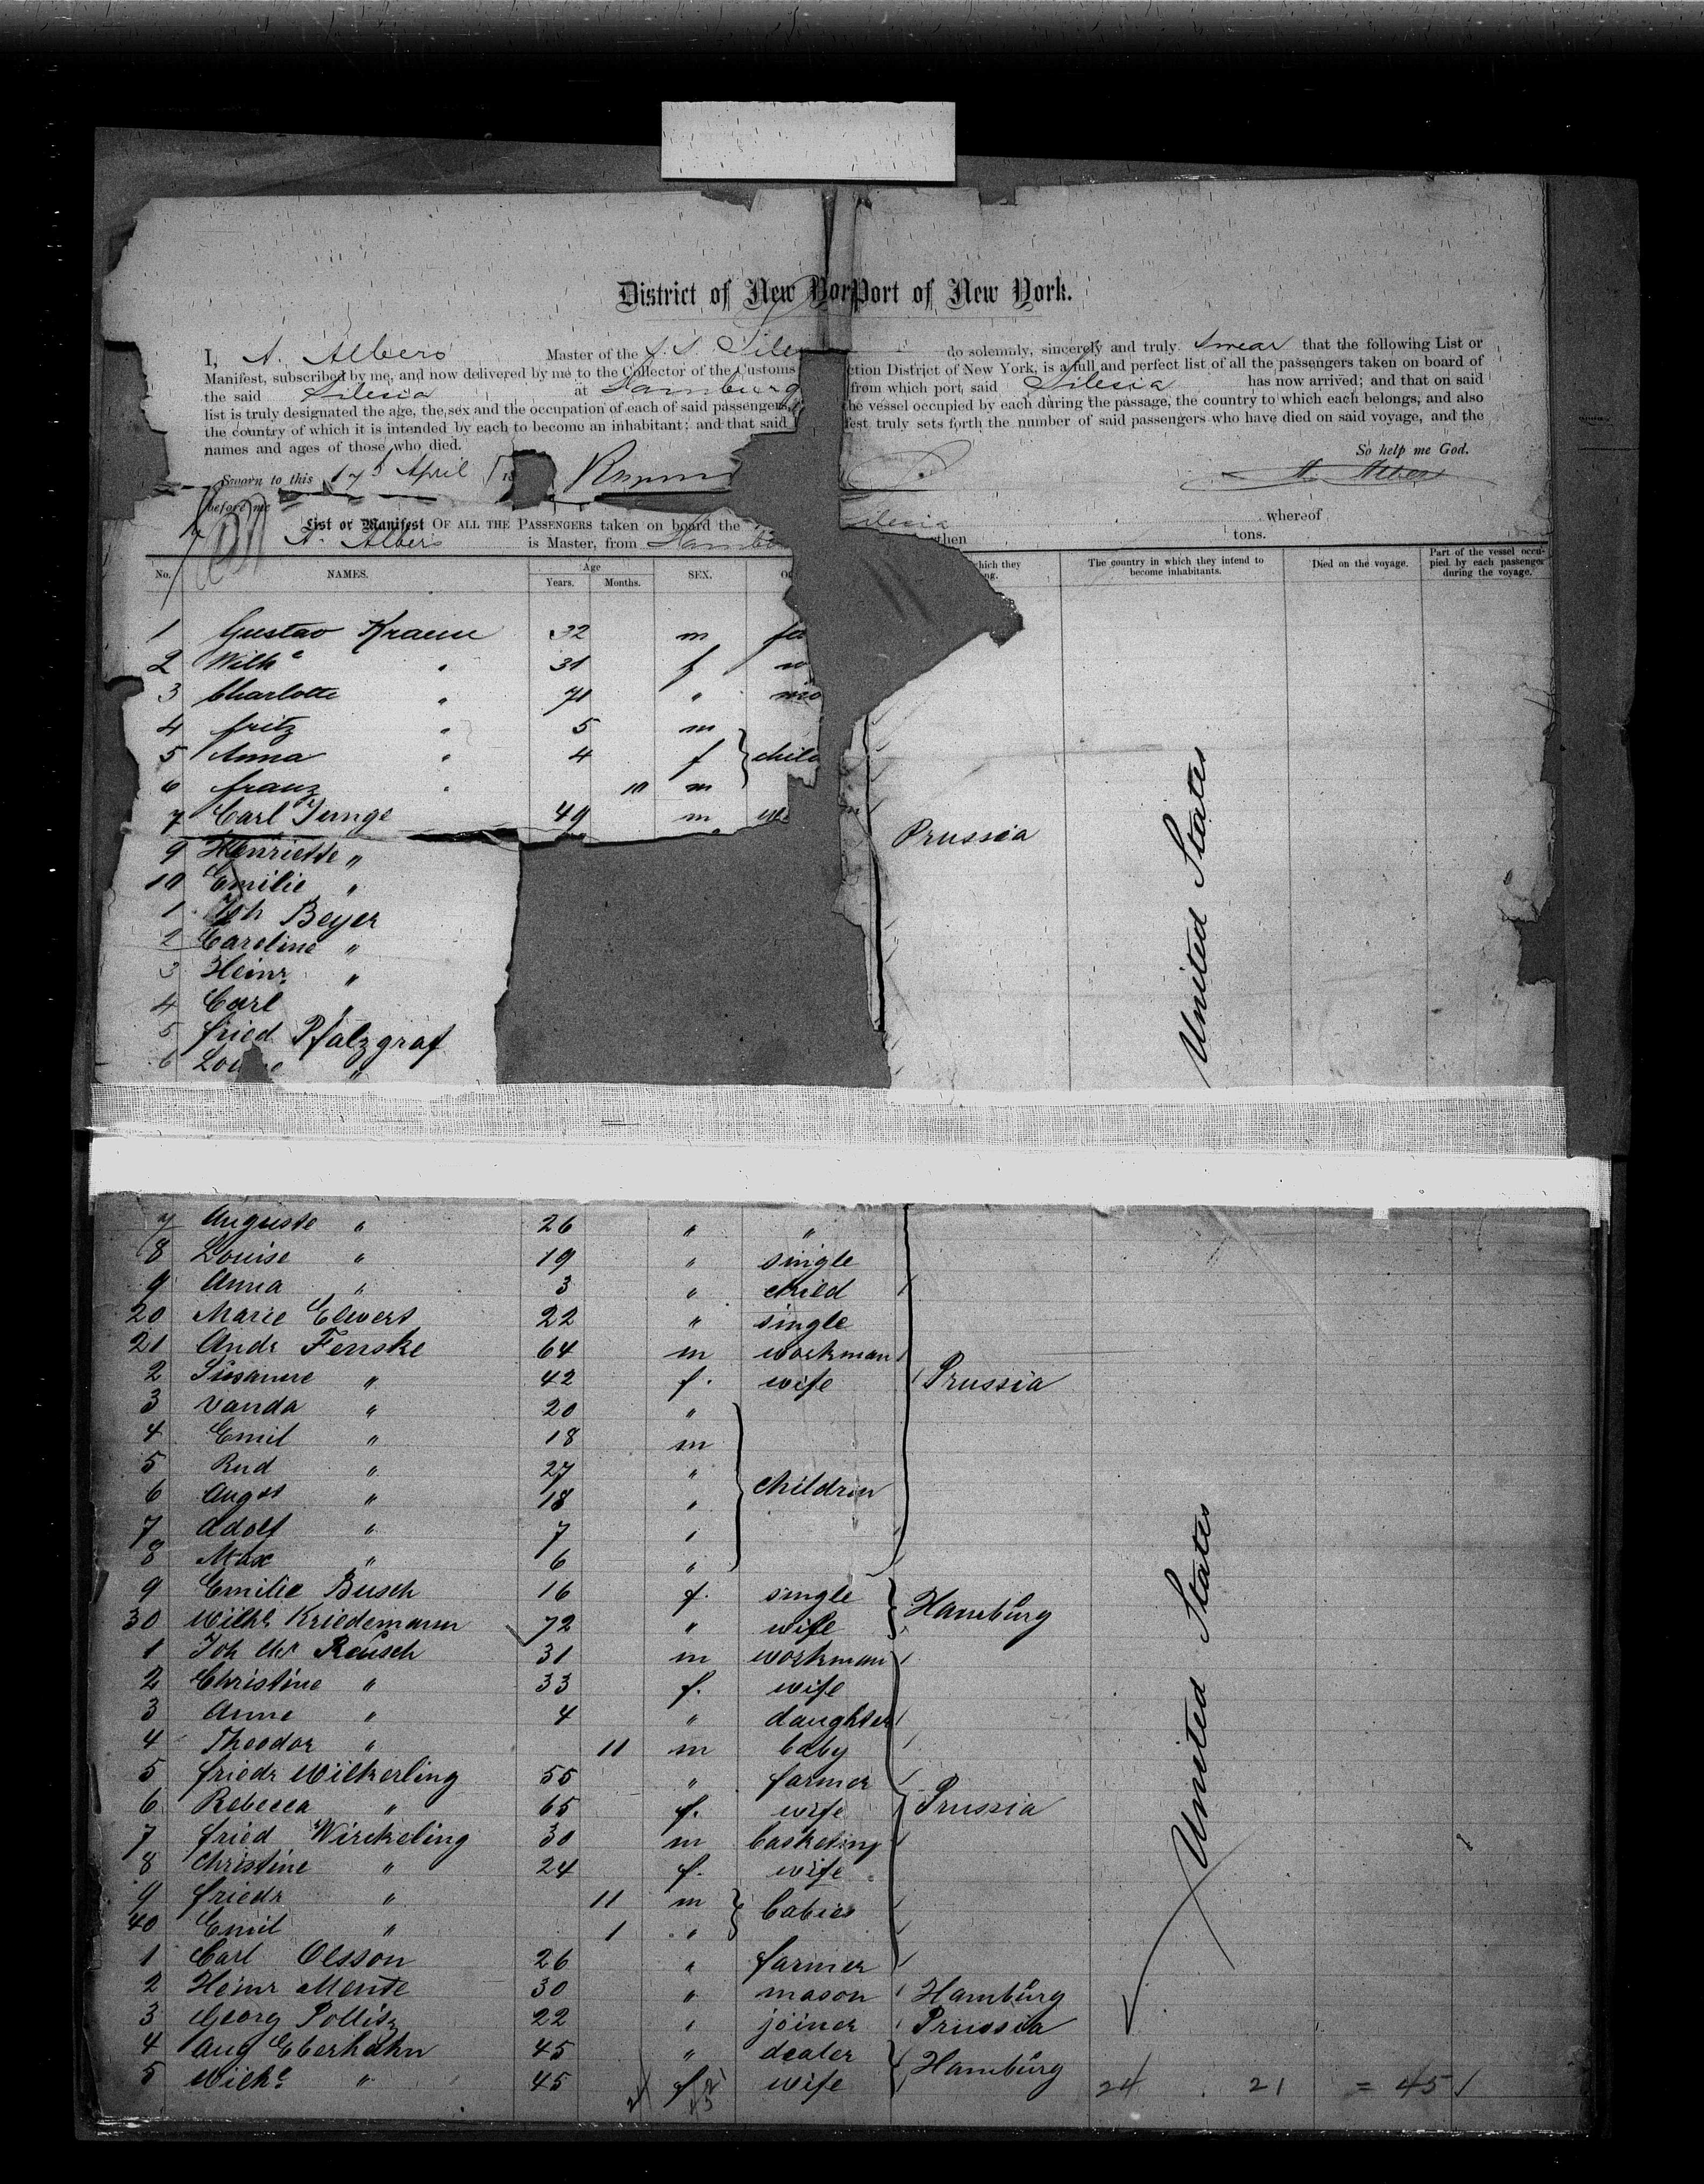 District of New York Port of New York.
I, A. Albers Master of the S. S. Siles do solemnly, sincerely and truly swear that the following List or
Manifest, subscribed by me, and now delivered by me to the Collector of the Customs ction District of New York, is a full and perfect list of all the passengers taken on board of
the said Silesia at Hamburg from which port, said Silesia has now arrived; and that on said
list is truly designated the age, the sex and the occupation of each of said passengers, the vessel occupied by each during the passage, the country to which each belongs, and also
the country of which it is intended by each to become an inhabitant; and that said fest truly sets forth the number of said passengers who have died on said voyage, and the
names and ages of those who died.
So help me God.
Sworn to this 17 April 18 A. Albers
before me
List or Manifest OF ALL THE PASSENGERS taken on board the Silesia whereof
A. Albers is Master, from Hamb then tons.
No. NAMES. Age Years. Months. SEX. Oc hich they ng. The country in which they intend to become inhabitants. Died on the voyage. Part of the vessel occupied by each passenger during the voyage.
1 Gustav Krause 32 m fa
2 Wilhe " 31 f w
3 Charlotte " 71 " mo
4 Fritz " 5 m
5 Anna " 4 f child
6 Franz " 10 m
7 Carl Junge 49 m wo Prussia
9 Henriette "
10 Emilie "
1 Joh Beyer
2 Caroline "
3 Heinr. "
4 Carl "
5 Fried Pfalzgraf
6 Louise "
United States
7 Auguste " 26 " "
8 Louise " 19 " single
9 Anna " 3 " child
20 Marie Elwert 22 " single
21 Andr Fenske 64 m workman
2 Susanne " 42 f. wife Prussia
3 Vanda " 20 "
4 Emil " 18 m
5 Rud " 27 " children
6 Augst " 18 "
7 Adolf " 7 "
8 Max " 6 "
9 Emilie Busch 16 f. single Hamburg
30 Wilhe Kriedemann 72 " wife
1 Joh Reusch 31 m workman
2 Christine " 33 f. wife
3 Anne " 4 " daughter
4 Theodor " 11 m baby
5 Friedr Wilkerling 55 " farmer
6 Rebecca " 65 f. wife Prussia
7 Fried Wirckeling 30 m
8 Christine " 24 f. wife
9 Friedr " 11 m babies
40 Emil " 1 "
1 Carl Olsson 26 " farmer
2 Heinr Mente 30 " mason Hamburg
3 Georg 22 " joiner Prussia
4 Aug Eberhahn 45 " dealer Hamburg
5 Wilhe " 45 f wife
United States
24 21 = 45